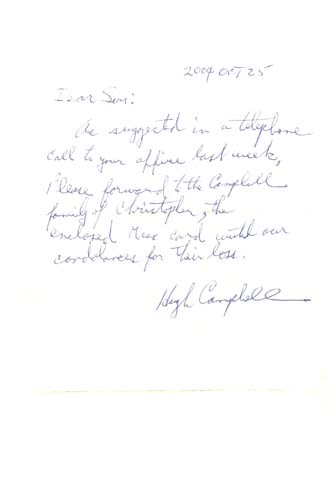 2009 OCT 25
Dear Sir:
As suggested in a telephone
call to your office last week,
Please forward to the Campbell
family of Christopher, the
enclosed Mass card with our
condolances for their loss.
Hugh Campbell